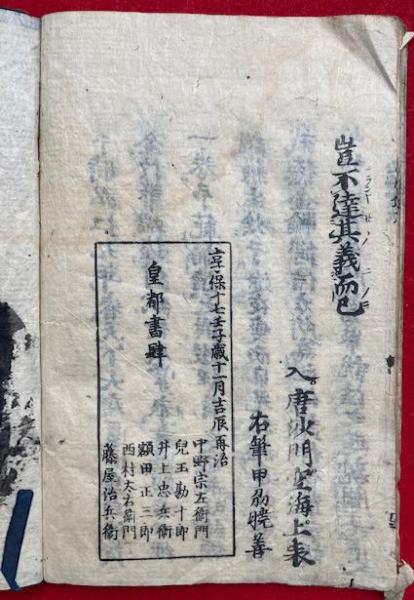 豈不達其義而已
入唐沙門空海上表
右筆甲刕暁善
享保十七壬子歳十一月吉辰再治
中野宗左衛門
兒玉勘十郎
井上忠兵衛
額田正三郎
西村太右衛門
藤屋治兵衛
皇都書肆